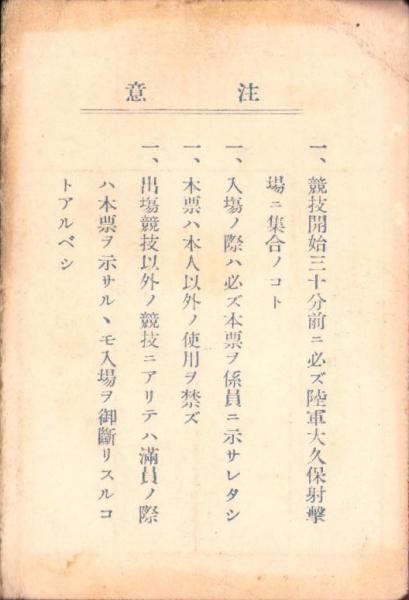 注意
一、競技開始三十分前ニ必ズ陸軍大久保射擊
場ニ集合ノコト
一、入場ノ際ハ必ズ本票ヲ係員ニ示サレタシ
一、本票ハ本人以外ノ使用ヲ禁ズ
一、出場競技以外ノ競技ニアリテハ滿員ノ際
ハ本票ヲ示サルヽモ入場ヲ御斷リスルコ
トアルベシ